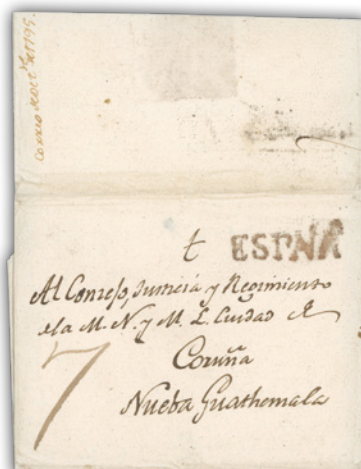 Correo de Oct.e de 1795.
t ESPAÑA
Al Concejo, Justicia y Regimiento
de la M. N. y M. L. Ciudad de
Coruña
Nueba Guathemala
7